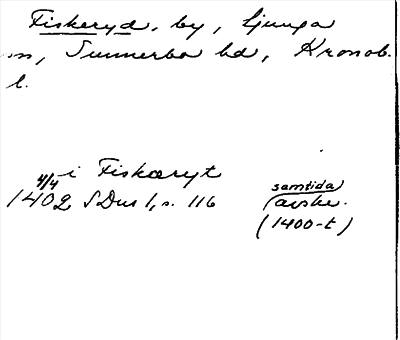 Fiskeryd, by, Ljunga
sn, Sunnerbo hd, Kronob.
l.
i Fiskæryt
4/4 samtida
1402 SDns 1, s. 116 (avskr.
(1400-t)